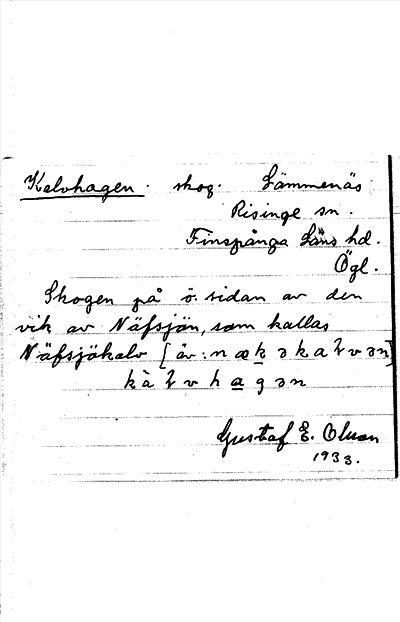 Kalvhagen. skog. Lämmenäs
Risinge sn.
Finspånga Läns hd.
Ögl.
Skogen på ö. sidan av den
vik av Näfsjön, som kallas
Näfsjökalv [äv: n æ k ə k a ɫ v ə n]
k à ɫ v h a g ə n
Gustaf E. Olsson
1933.